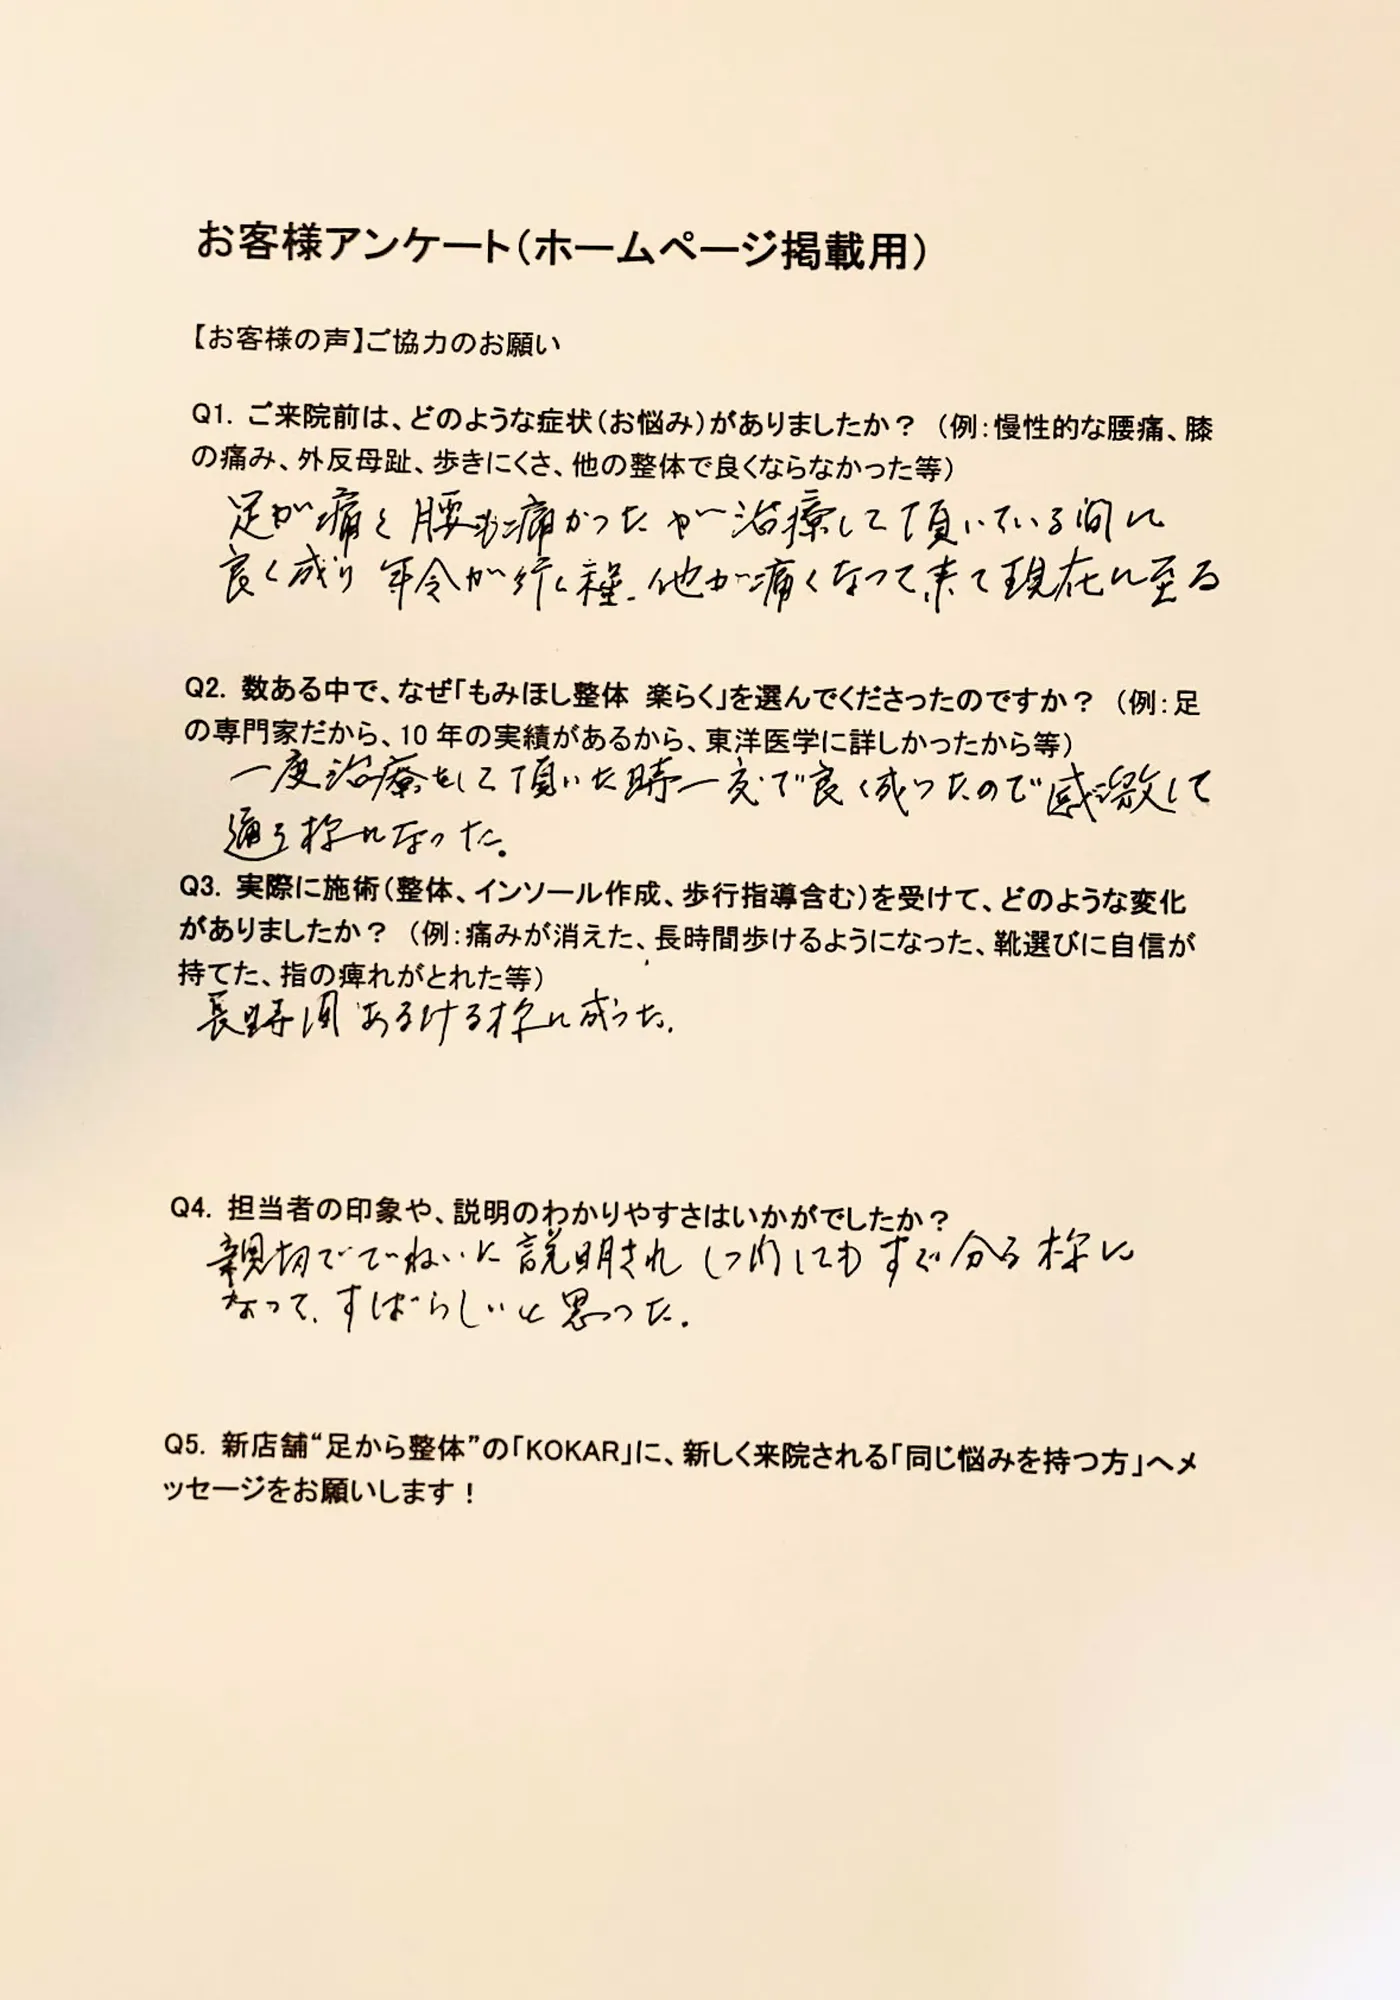 お客様アンケート（ホームページ掲載用）
【お客様の声】ご協力のお願い
Q1. ご来院前は、どのような症状（お悩み）がありましたか？（例：慢性的な腰痛、膝
の痛み、外反母趾、歩きにくさ、他の整体で良くならなかった等）
足が痛く腰も痛かったが治療して頂いている間に
良く成り年令が行く程、他が痛くなって来て現在に至る
Q2. 数ある中で、なぜ「もみほし整体 楽らく」を選んでくださったのですか？（例：足
の専門家だから、10年の実績があるから、東洋医学に詳しかったから等）
一度治療をして頂いた時一度で良く成ったので感激して
通う様になった。
Q3. 実際に施術（整体、インソール作成、歩行指導含む）を受けて、どのような変化
がありましたか？（例：痛みが消えた、長時間歩けるようになった、靴選びに自信が
持てた、指の痺れがとれた等）
長時間あるける様に成った。
Q4. 担当者の印象や、説明のわかりやすさはいかがでしたか？
親切でていねいに説明され しつ問してもすぐ分る様に
なって、すばらしいと思った。
Q5. 新店舗“足から整体”の「KOKAR」に、新しく来院される「同じ悩みを持つ方」へメ
ッセージをお願いします！